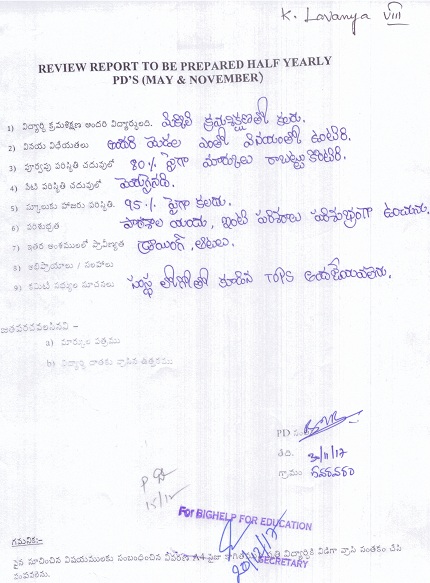 K. Lavanya VIII
REVIEW REPORT TO BE PREPARED HALF YEARLY
PD'S (MAY & NOVEMBER)
1) విద్యార్థి క్రమశిక్షణ అందరి విద్యార్థులది. మెరుగైన క్రమశిక్షణతో కలదు.
2) వినయ విధేయతలు అందరి యెడల ఎంతో వినయంతో ఉంటారు.
3) పూర్వపు పరిస్థితి చదువులో 80% పైగా మార్కులు రాబట్టు
4) నేటి పరిస్థితి చదువులో మెరుగైనది.
5) స్కూలుకు హాజరు పరిస్థితి. 95% పైగా కలదు.
6) పరిశుభ్రత పాఠశాల యందు, ఇంటి పరిసరాలు పరిశుభ్రంగా ఉంచును.
7) ఇతర అంశములలో ప్రావీణ్యత డ్రాయింగ్, ఆటలు.
8) అభిప్రాయాలు / సలహాలు
9) కమిటీ సభ్యుల సూచనలు సంస్థ లోగోతో కూడిన TOPS అందజేయవలెను.
జతపరచవలసినవి –
a) మార్కుల పత్రము
b) విద్యార్థి దాతకు వ్రాసిన ఉత్తరము
PD
తేది. 30/11/17
గ్రామం
15/12
For BIGHELP FOR EDUCATION
20/12/17
SECRETARY
గమనిక:-
పైన సూచించిన విషయములకు సంబంధించిన వివరణ A4 విద్యార్థికి విడిగా వ్రాసి సంతకం చేసి
పంపవలెను.